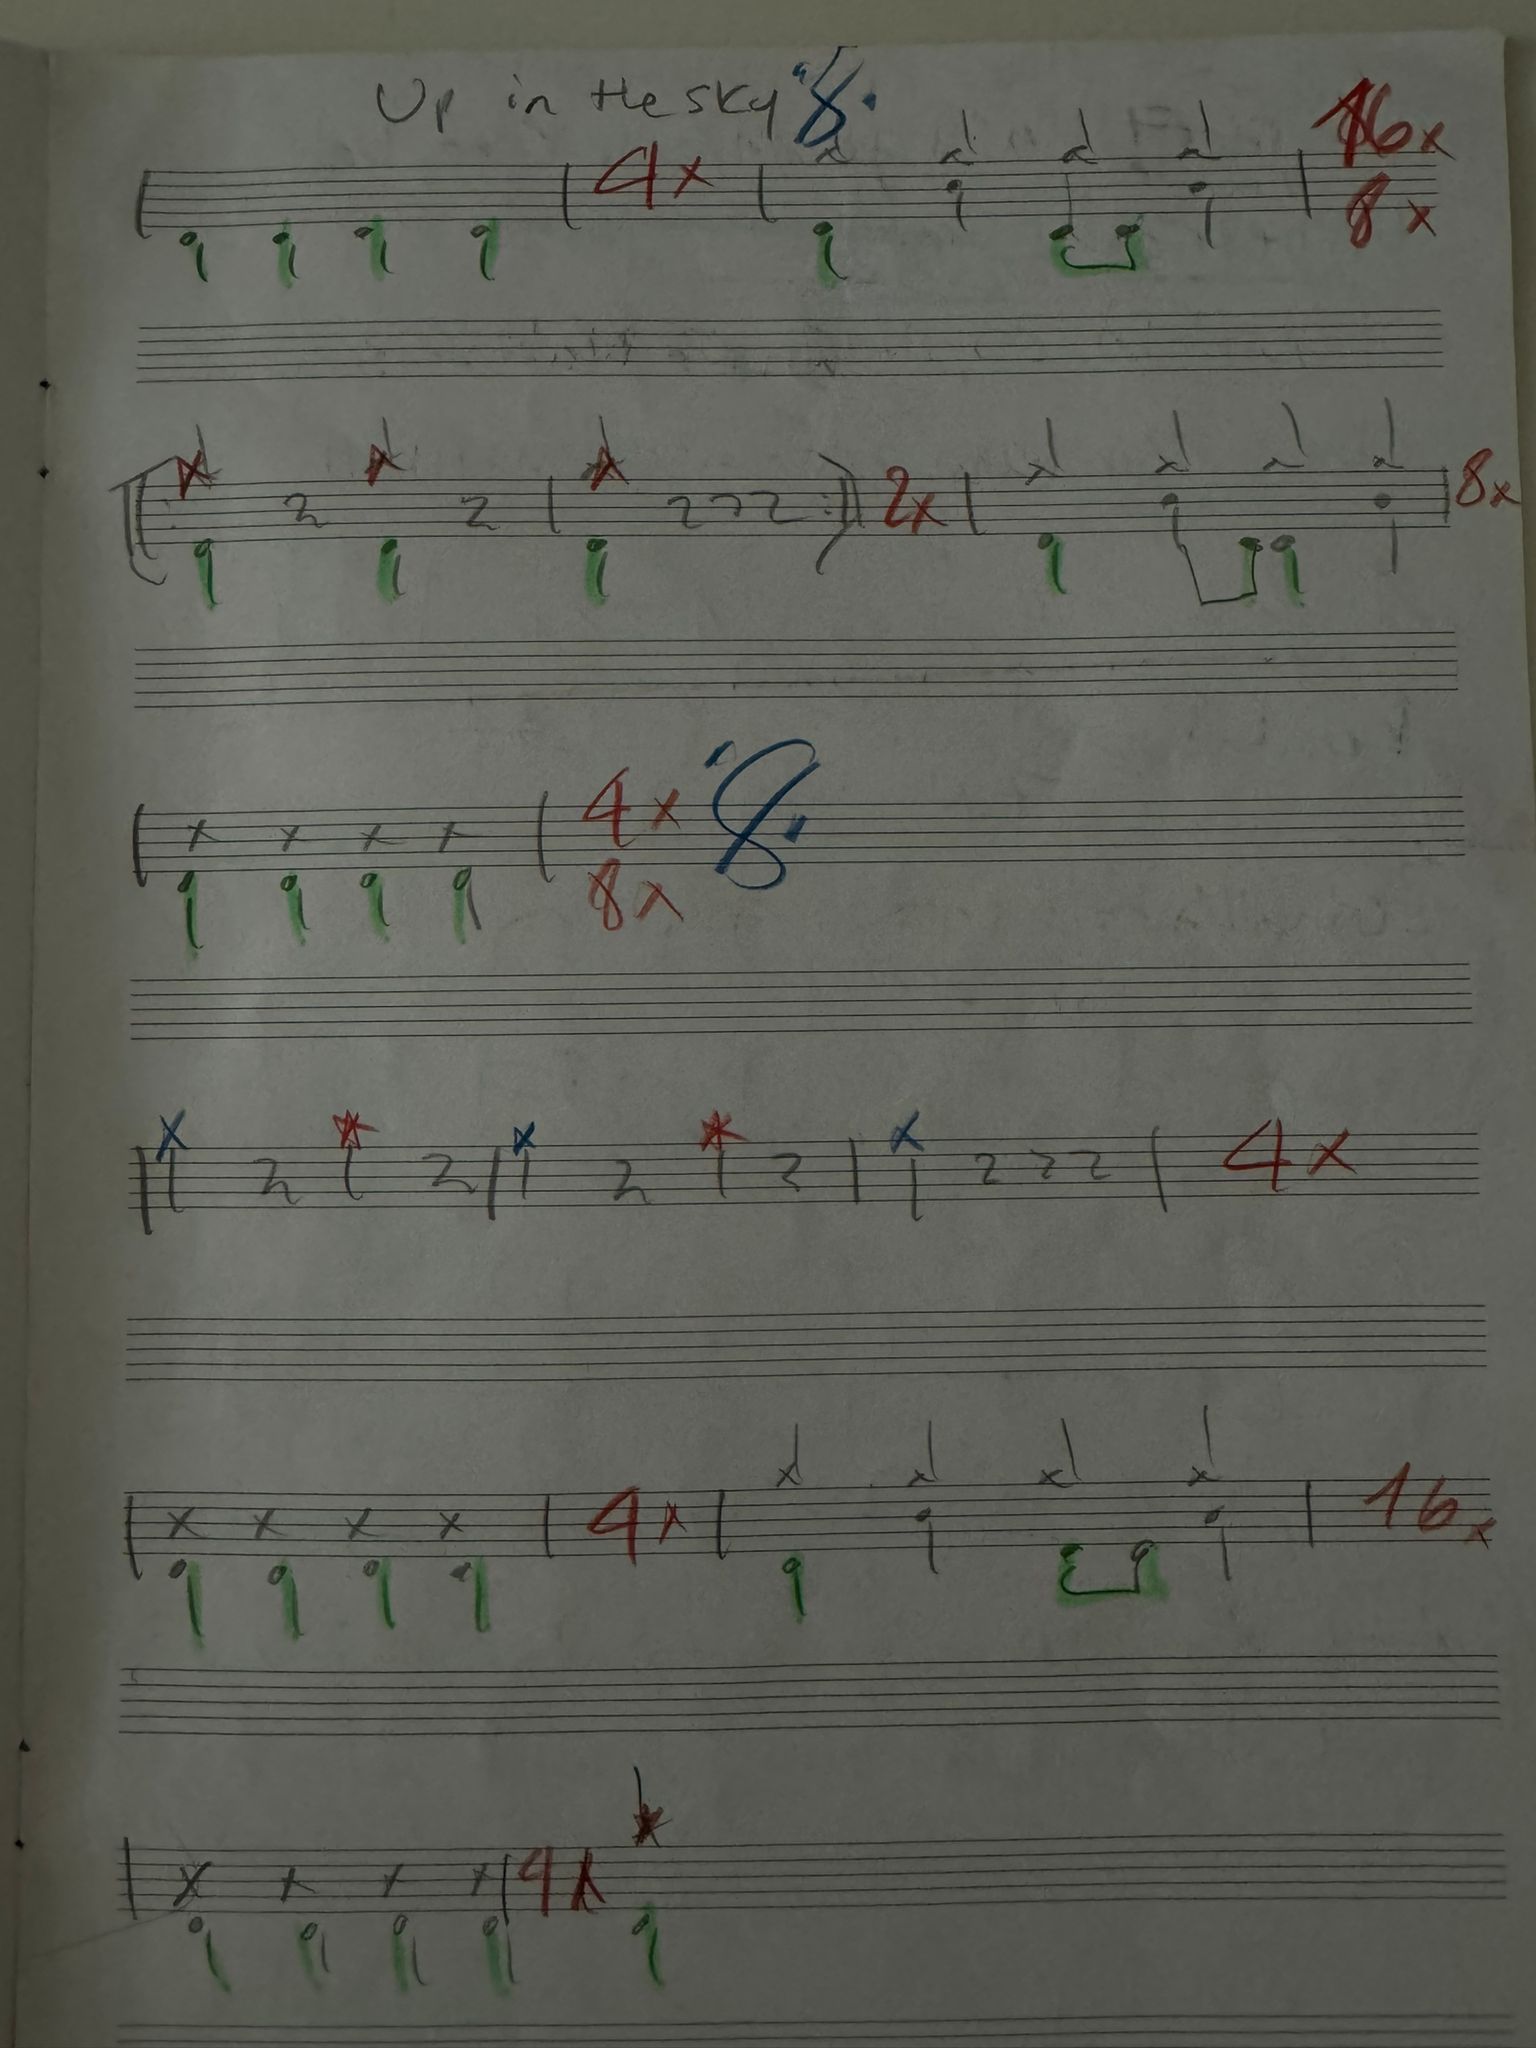 Up in the sky
4x 16x
8x
2x 8x
4x
8x
4x
4x 16x
4x